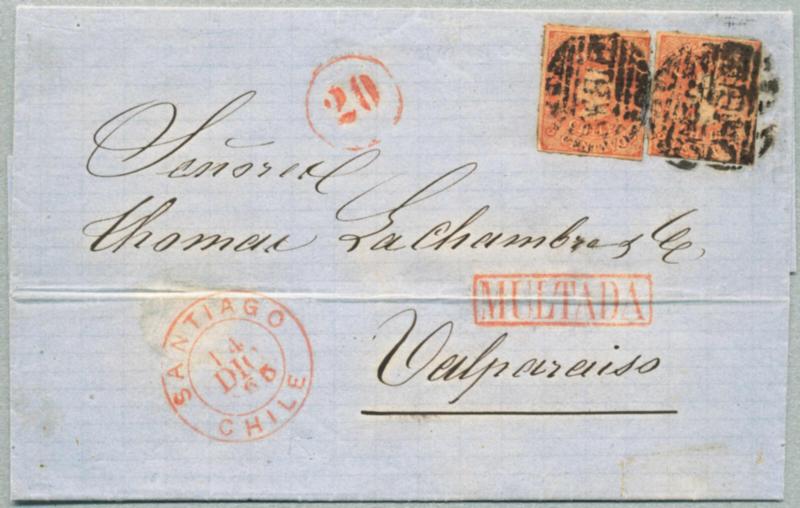 20
Señores
Thomas Lachambre & Ca.
MULTADA
Valparaiso
SANTIAGO
14
DIC
65
CHILE